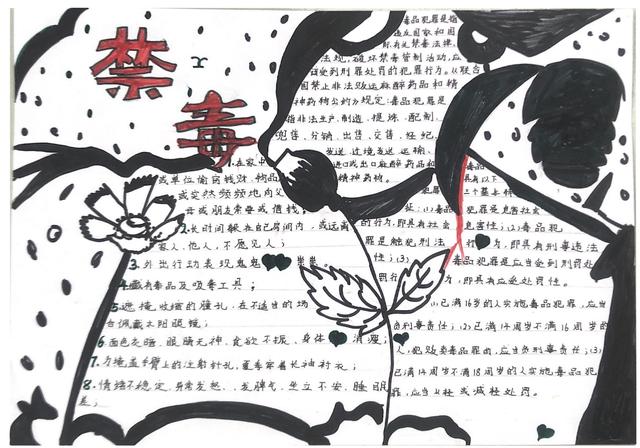 禁
毒
1.在家中
或单位偷窃钱财、物品
或突然频频地向父
母或朋友索要或借钱;
2.长时间躲在自己房间内,或远离
家人,他人,不愿见人;
3.外出行动表现鬼鬼祟祟
4.藏有毒品及吸毒工具;
5.遮掩收缩的瞳孔,在不适当的场
合佩戴太阳眼镜;
6.面色灰暗、眼睛无神、食欲不振、身体消瘦;
7.为掩盖手臂上的注射针孔,夏季穿着长袖衬衣;
8.情绪不稳定、异常发怒、发脾气、坐立不安、睡眠
差;
毒品犯罪是指
违反国家和国
际有关禁毒法律、
法规,破坏禁毒管制活动,应
该受到刑罚处罚的犯罪行为。从联合
国禁止非法贩运麻醉药品和精
神药物公约》规定:毒品犯罪是
指非法生产、制造、提炼、配制、
兜售、分销、出售、交售、经纪、
发送、过境发送、运输、
进口或出口麻醉药品和
精神药物。
毒品犯罪具有以下
三个基本特
征:(1)毒品犯罪是危害社会
的行为,即具有社会危害性;(2)毒品犯
罪是触犯刑法的行为,即具有刑事违法
性;(3)毒品犯罪是应当受到刑罚处
罚行为,即具有应受处罚性。
(1)已满16岁的人实施毒品犯罪,应当
负刑事责任;(2)已满14周岁不满16周岁的
人,犯贩卖毒品罪的,应当负刑事责任;(3)
已满14周岁不满18周岁的人实施毒品犯
罪,应当从轻或减轻处罚。